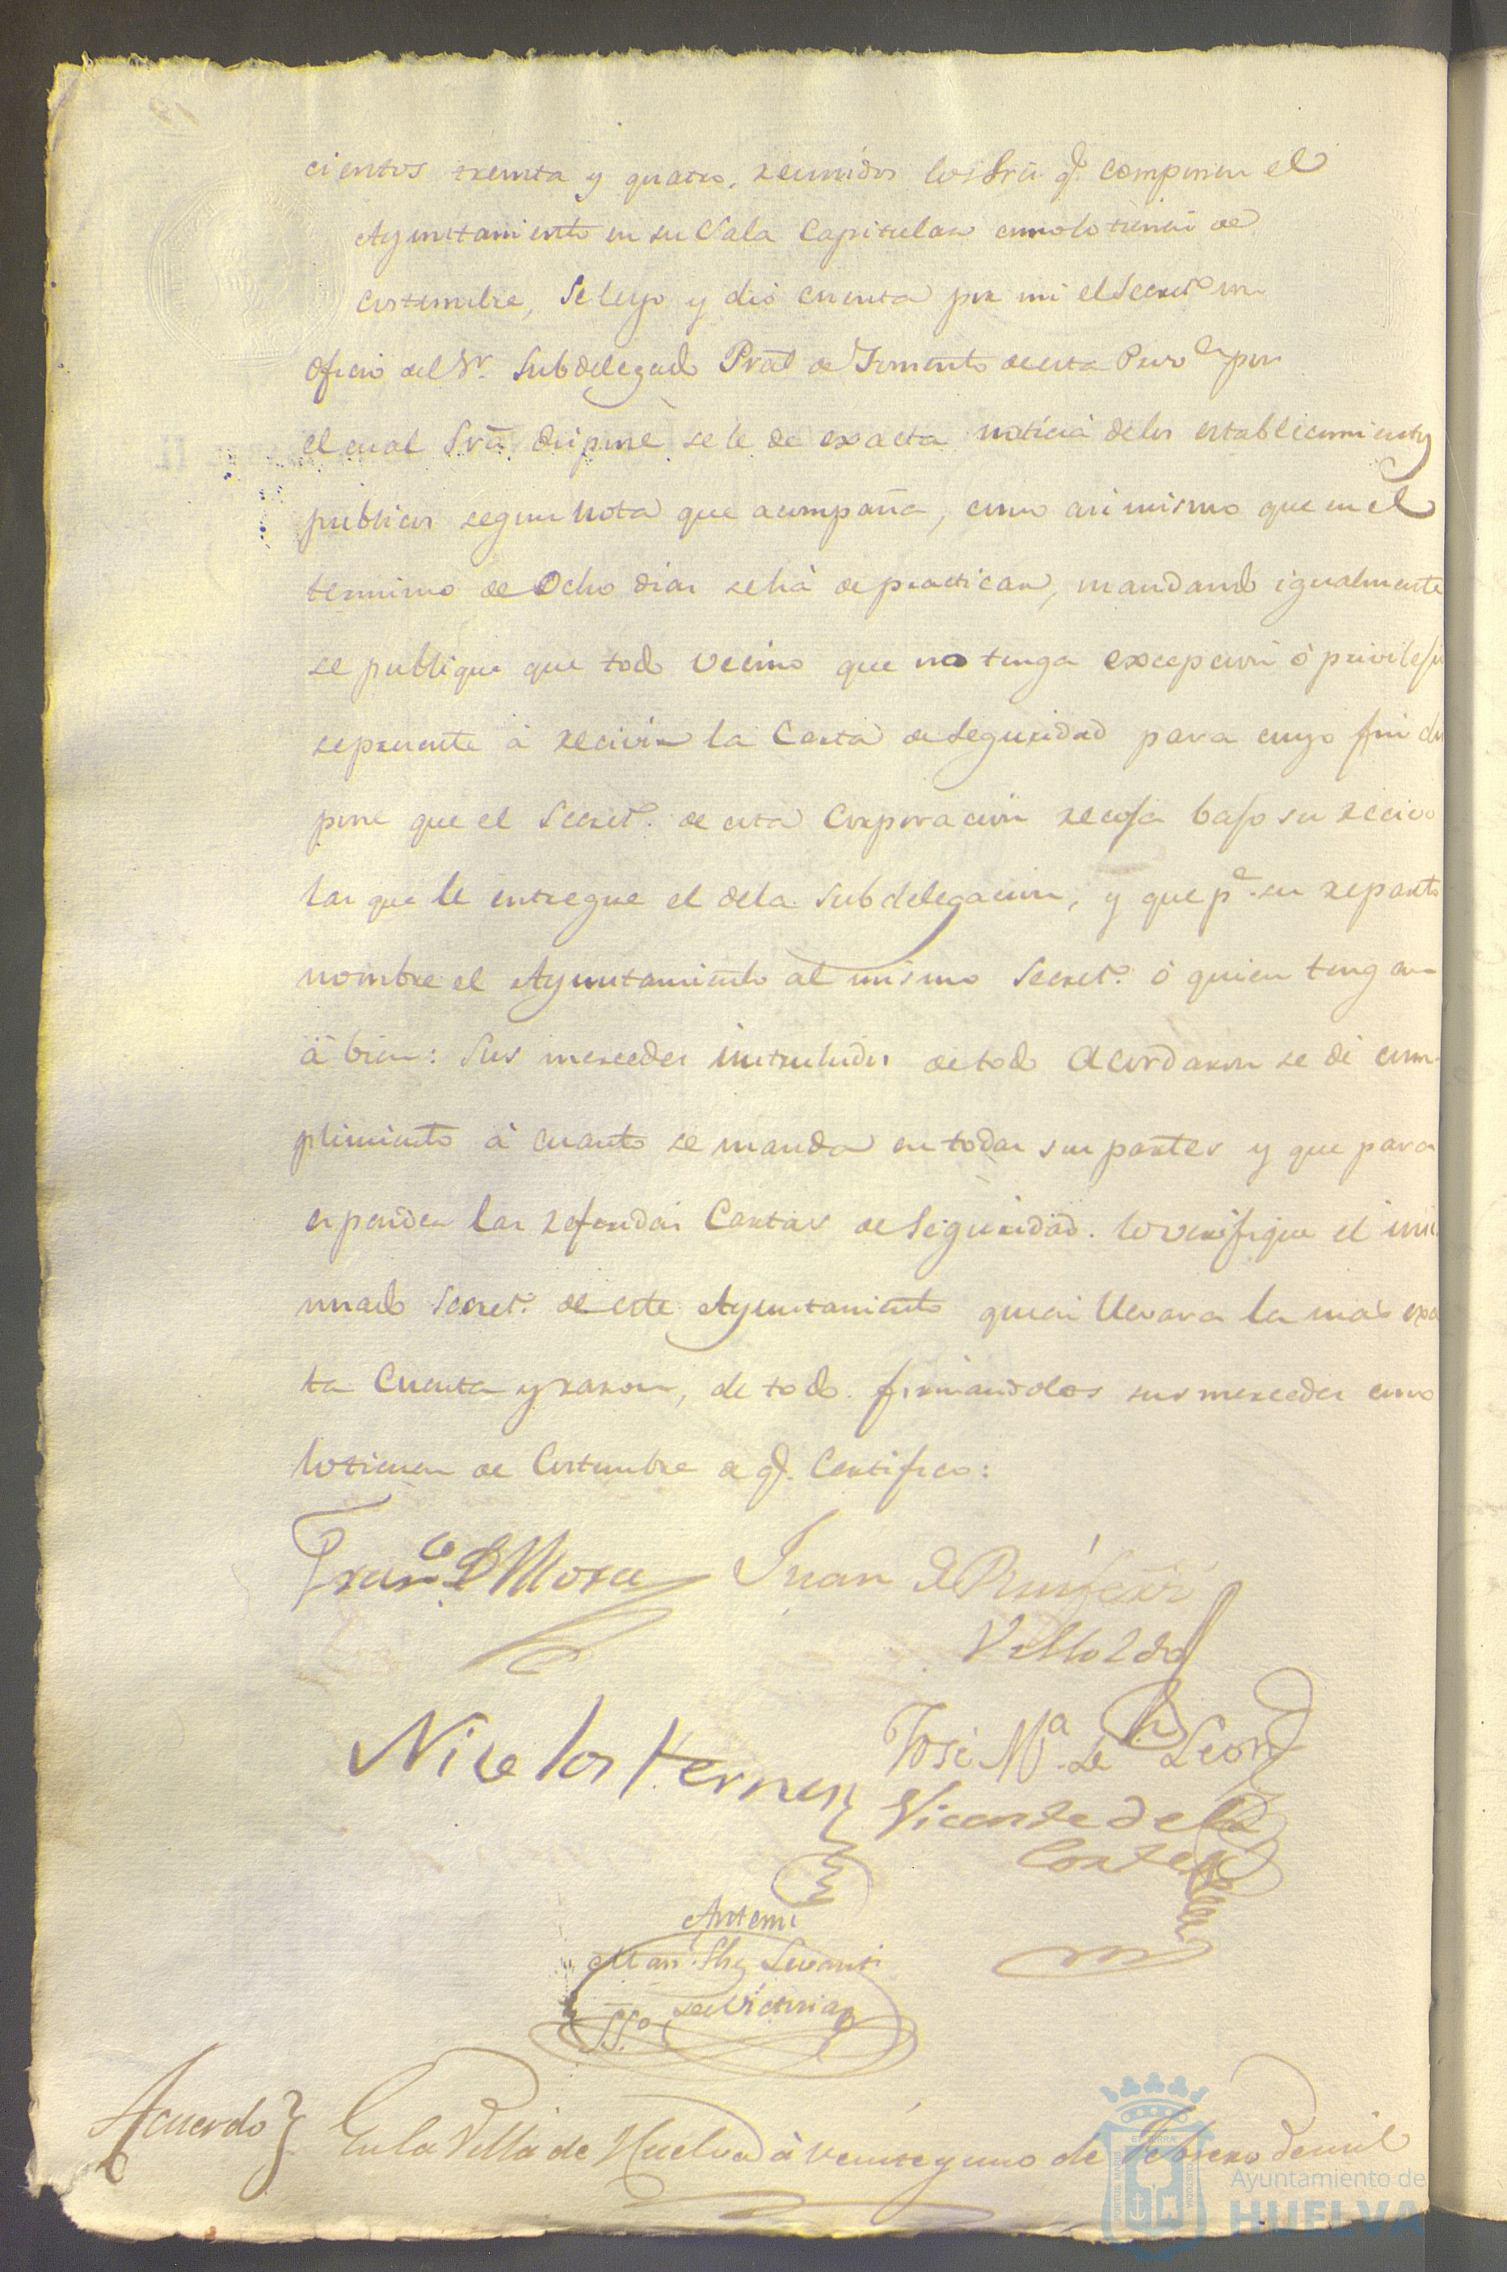 cientos treinta y quatro, reunidos los Sres q.e componen el
Ayuntamiento en su Sala Capitular como lo tienen de
costumbre, se leyo y dió cuenta por mi el Secret.o un
oficio del Sr. Subdelegado Pral de Fomento de esta Prov.a por
el cual Sria dispone se le dé exacta noticia delos establecimientos
publicos segun nota que acompaña, como asi mismo que en el
termino de Ocho dias se há de practicar, mandando igualmente
se publique que todo vecino que no tenga excepcion ó privilejio
se presente á recivir la Carta de Seguridad para cuyo fin dis
pone que el Secret.o de esta Corporacion recoja bajo su recivo
las que le entregue el dela Subdelegacion, y que p.a su reparto
nombre el Ayuntamiento al mismo Secret.o ó quien tenga
á bien: Sus mercedes instruhidos de todo Acordaron se dé cum-
plimiento á cuanto se manda en todas sus partes y que para
espender las referidas Cartas de Seguridad. lo verifique el
Secret.o de este Ayuntamiento quien llevara la mas exa
ta Cuenta y razon, de todo. firmandolos sus mercedes como
lo tienen de Costumbre de q.e Certifico:
Fran.co D Mora Juan
Villolda
Nicolas Hernan José M.a de Leon
Vicente de la
Corte
Antemi
Man.l Levanti
de Victoria
SS.o
Acuerdo} En la Villa de Huelva á veinte y uno de Febrero de mil
Ayuntamiento de
HUELVA